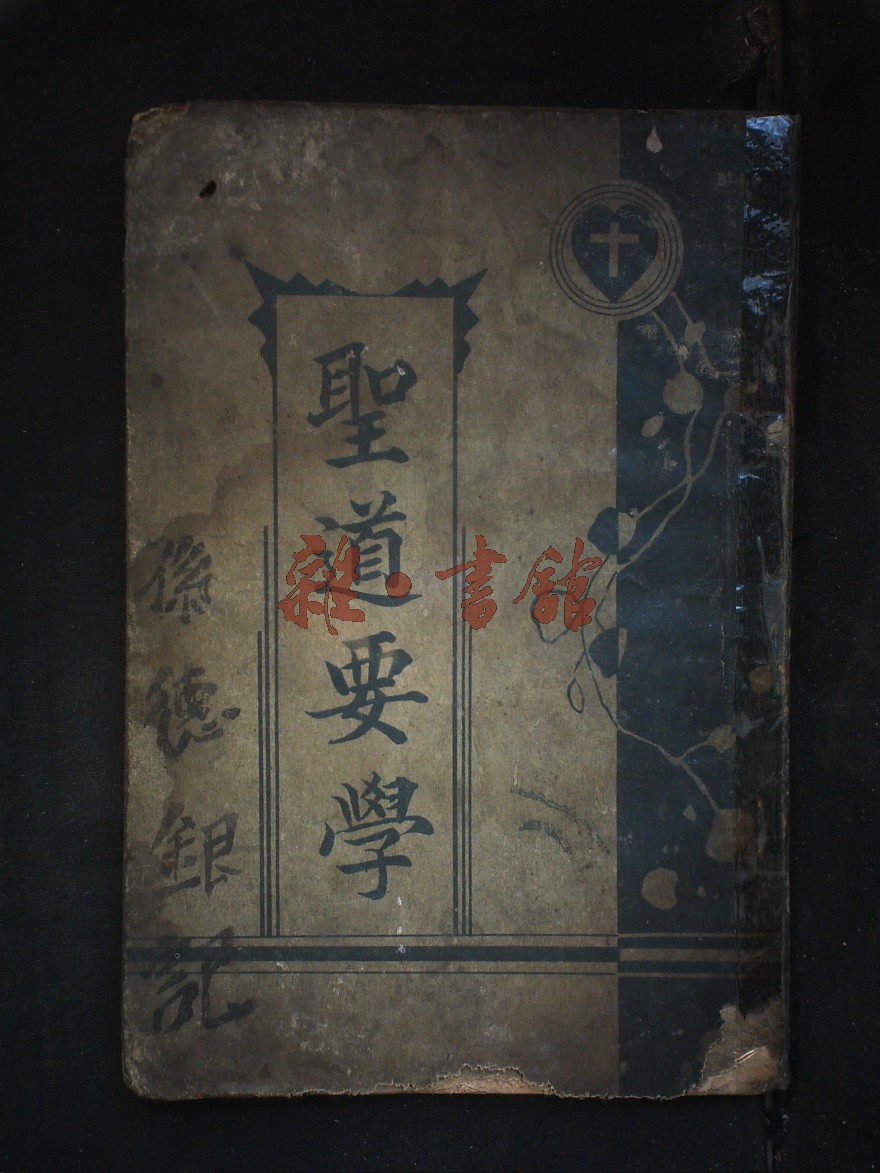 聖道要學
孫德銀記
雜·書館